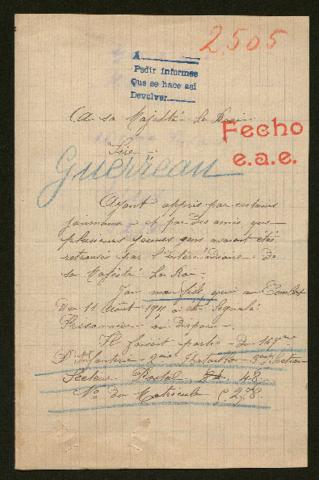 2.505
A
Pedir informes
Que se hace así
Devolver
A sa Majesté le Roi
Fecho
e.a.e.
Sire
Guerreau
Ayant appris par certains
journaux et par des amis, que
plusieurs jeunes gens avaient été
retrouvés par l'intermédiaire de
sa Majesté Le Roi
mon fils
Du 11 Août a été Signalé
Prisonnier ou disparu
Il faisait partie du
D'Infanterie Section
Secteur Postal 48
No du Matricule